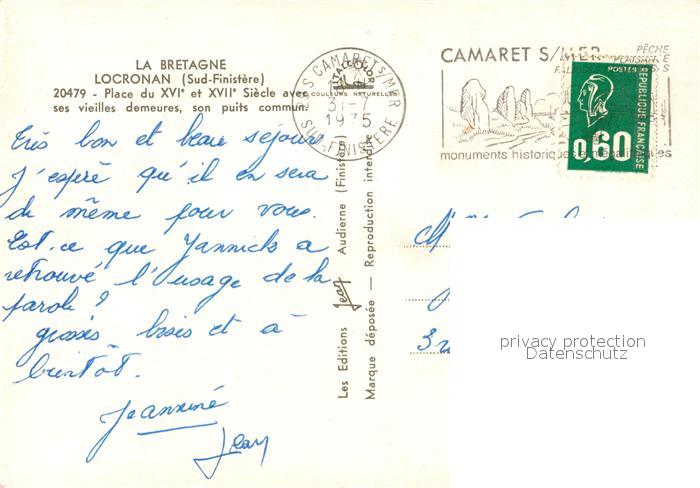 LA BRETAGNE
LOCRONAN (Sud-Finistère)
20479 - Place du XVIe et XVIIe Siècle avec
ses vieilles demeures, son puits commun.
Très bon et beau séjour
j'espère qu'il en sera
de même pour vous.
Est-ce que Yannick a
retrouvé l'usage de la
parole ?
grosses bises et à
bientôt.
Jeannine
Jean
Les Editions Jean Audierne (Finistère)
Marque déposée — Reproduction interdite
COULEURS NATURELLES
CAMARET S/MER
31-7
1975
FINISTÈRE
CAMARET S/MER
PÊCHE
PLAISANCE
monuments historiques
POSTES
REPUBLIQUE FRANÇAISE
0,60
privacy protection
Datenschutz